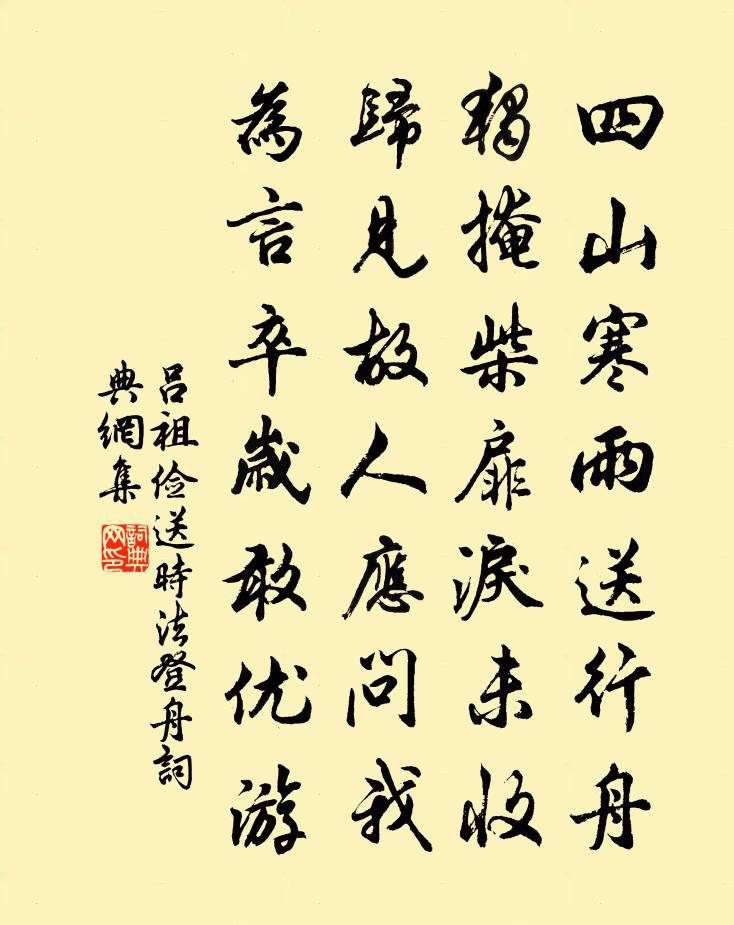 四山寒雨送行舟
獨掩柴扉淚未收
歸見故人應問我
為言卒歲敢优游
吕祖俭送時法登舟詞
典網集
詞典
网印